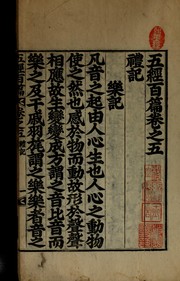 五經百篇卷之五
禮記
樂記
凡音之起由人心生也人心之動物
使之然也感於物而動故形於聲聲
相應故生變變成方謂之音比音而
樂之及干戚羽旄謂之樂樂者音之